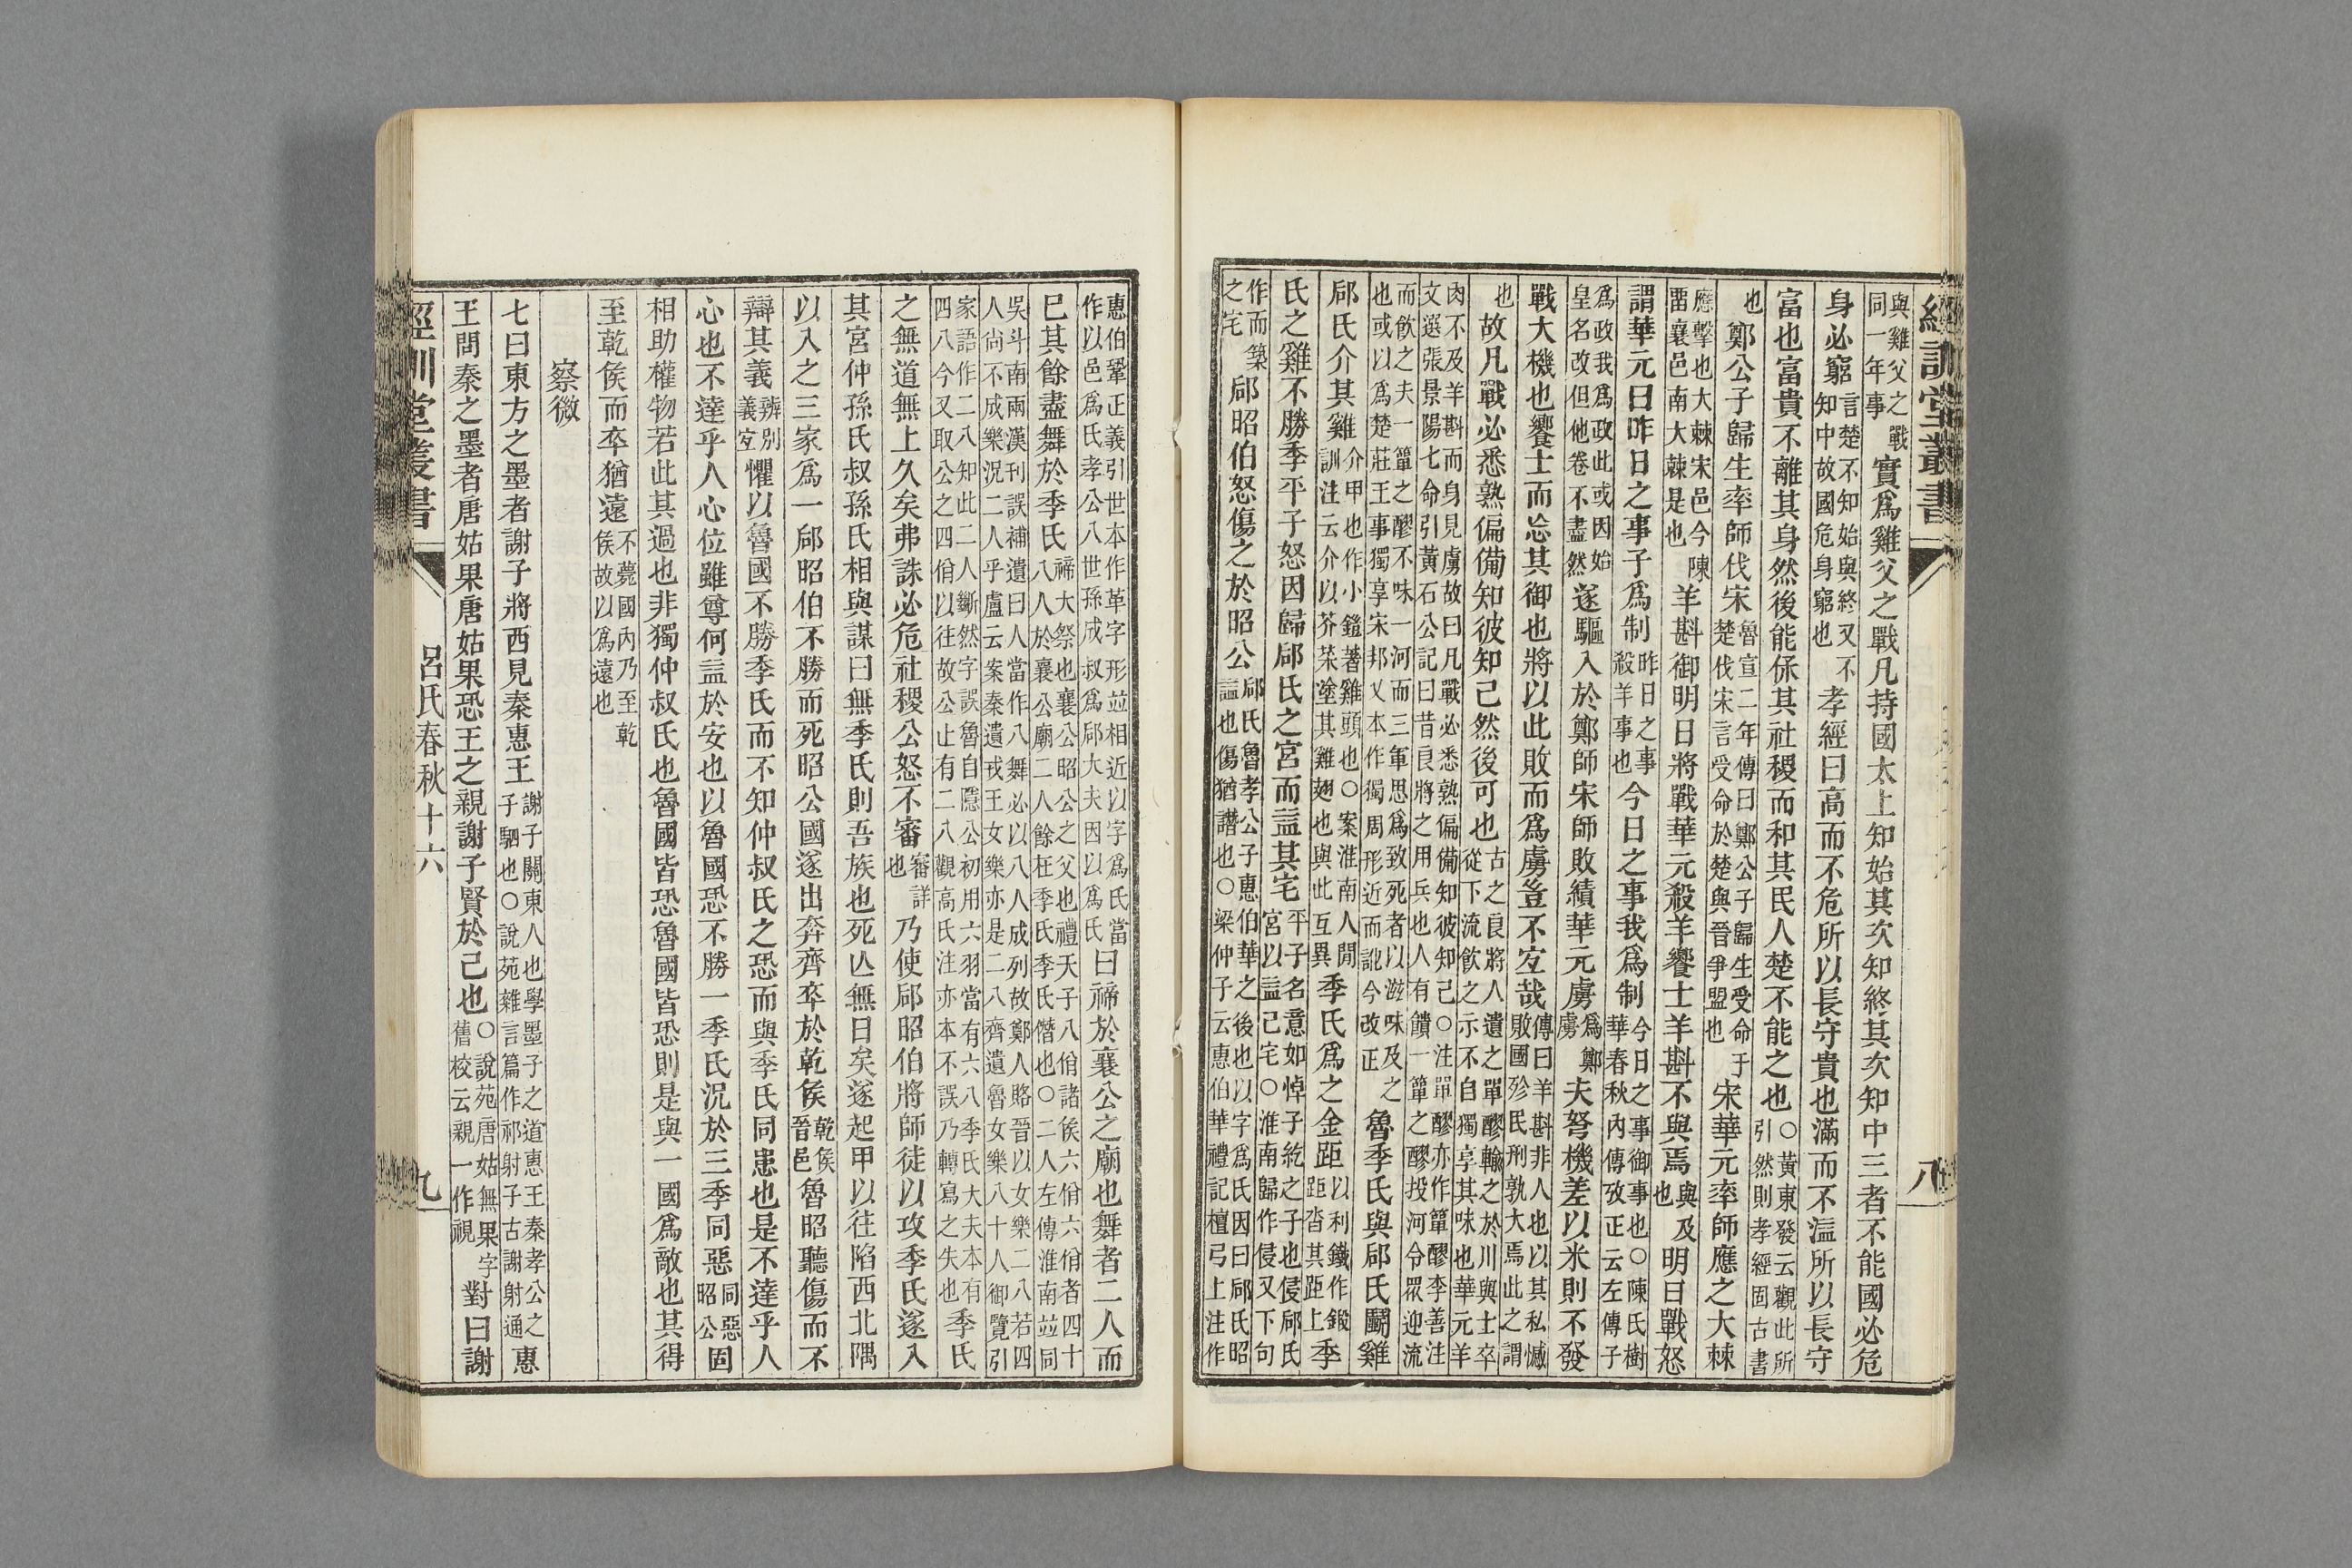 經訓堂叢書
八
與雞父之戰同一年事實爲雞父之戰凡持國太上知始其次知終其次知中三者不能國必危
身必窮言楚不知始與終又不知中故國危身窮也孝經曰高而不危所以長守貴也滿而不溢所以長守
富也富貴不離其身然後能保其社稷而和其民人楚不能之也○黃東發云觀此所引然則孝經固古書
也鄭公子歸生率師伐宋魯宣二年傳曰鄭公子歸生受命于楚伐宋言受命於楚與晉爭盟也宋華元率師應之大棘
應擊也大棘宋邑今陳畱襄邑南大棘是也羊斟御明日將戰華元殺羊饗士羊斟不與焉與及也明日戰怒
謂華元曰昨日之事子爲制昨日之事殺羊事也今日之事我爲制今日之事御事也○陳氏樹華春秋內傳攷正云左傳子
爲政我爲政此或因始皇名改但他卷不盡然遂驅入於鄭師宋師敗績華元虜爲鄭虜夫弩機差以米則不發
戰大機也饗士而忘其御也將以此敗而爲虜豈不宜哉傳曰羊斟非人也以其私憾敗國殄民刑孰大焉此之謂
也故凡戰必悉熟偏備知彼知己然後可也古之良將人遺之單醪輸之於川與士卒從下流飲之示不自獨享其味也華元羊
肉不及羊斟而身見虜故曰凡戰必悉熟偏備知彼知己○注單醪亦作簞醪李善注文選張景陽七命引黃石公記曰昔良將之用兵也人有饋一簞之醪投河令眾迎流
而飲之夫一簞之醪不味一河而三軍思爲致死者以滋味及之也或以爲楚莊王事獨享宋邦乂本作獨周形近而訛今改正魯季氏與郈氏鬬雞
郈氏介其雞介甲也作小鎧著雞頭也○案淮南人閒訓注云介以芥菜塗其雞翅也與此互異季氏爲之金距以利鐵作鍛距沓其距上季
氏之雞不勝季平子怒因歸郈氏之宮而益其宅平子名意如悼子紇之子也侵郈氏宮以益己宅○淮南歸作侵又下句
作而築之宅郈昭伯怒傷之於昭公郈氏魯孝公子惠伯華之後也以字爲氏因曰郈氏昭謚也傷猶譖也○梁仲子云惠伯華禮記檀弓上注作
惠伯鞏正義引世本作革字形竝相近以字爲氏當作以邑爲氏孝公八世孫成叔爲郈大夫因以爲氏曰禘於襄公之廟也舞者二人而
已其餘盡舞於季氏禘大祭也襄公昭公之父也禮天子八佾諸侯六佾六佾者四十八人於襄公廟二人餘在季氏季氏僭也○二人左傳淮南竝同
吳斗南兩漢刊誤補遺曰人當作八舞必以八人成列故鄭人賂晉以女樂二八若四人尙不成樂況二人乎盧云案秦遺戎王女樂亦是二八齊遺魯女樂八十人御覽引
家語作二八知此二人斷然字誤魯自隱公初用六羽當有六八季氏大夫本有四八今又取公之四佾以往故公止有二八觀高氏注亦本不誤乃轉寫之失也季氏
之無道無上久矣弗誅必危社稷公怒不審審詳也乃使郈昭伯將師徒以攻季氏遂入
其宮仲孫氏叔孫氏相與謀曰無季氏則吾族也死亾無日矣遂起甲以往陷西北隅
以入之三家爲一郈昭伯不勝而死昭公國遂出奔齊卒於乾侯乾侯晉邑魯昭聽傷而不
辯其義辨別義宜懼以魯國不勝季氏而不知仲叔氏之恐而與季氏同患也是不達乎人
心也不達乎人心位雖尊何益於安也以魯國恐不勝一季氏況於三季同惡同惡昭公固
相助權物若此其過也非獨仲叔氏也魯國皆恐魯國皆恐則是與一國爲敵也其得
至乾侯而卒猶遠不薨國內乃至乾侯故以爲遠也
察微
七曰東方之墨者謝子將西見秦惠王謝子關東人也學墨子之道惠王秦孝公之子駟也○說苑雜言篇作祁射子古謝射通惠
王問秦之墨者唐姑果唐姑果恐王之親謝子賢於己也○說苑唐姑無果字舊校云親一作視對曰謝
經訓堂叢書
呂氏春秋十六
九